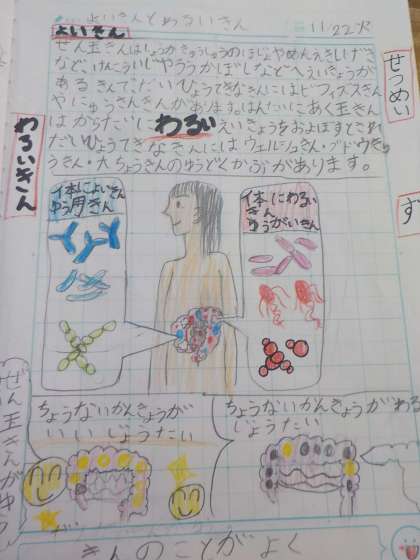 よいきんとわるいきん
11/22火
よいきん
ぜん玉きんはしょうかきゅうしゅうのほじょやめんえきしげき
など、けんこういじやろうかぼしなどへえいきょうが
あるきんでだいひょうてきなきんにはビフィズスきん
やにゅうさんきんがあります。はんたいにあく玉きん
はからだにわるいえいきょうをおよぼすとこされ
だいひょうてきなきんにはウェルシュきん・ブドウきゅ
うきん・大ちょうきんのゆうどくかぶがあります。
せつめい
わるいきん
ず
体によいきん
ゆう用きん
体にわるい
きん
ゆうがいきん
ちょうないかんきょうが
いいじょうたい
ちょうないかんきょうがわる
じょうたい
ぜん玉きんがゆう
きんのことがよく